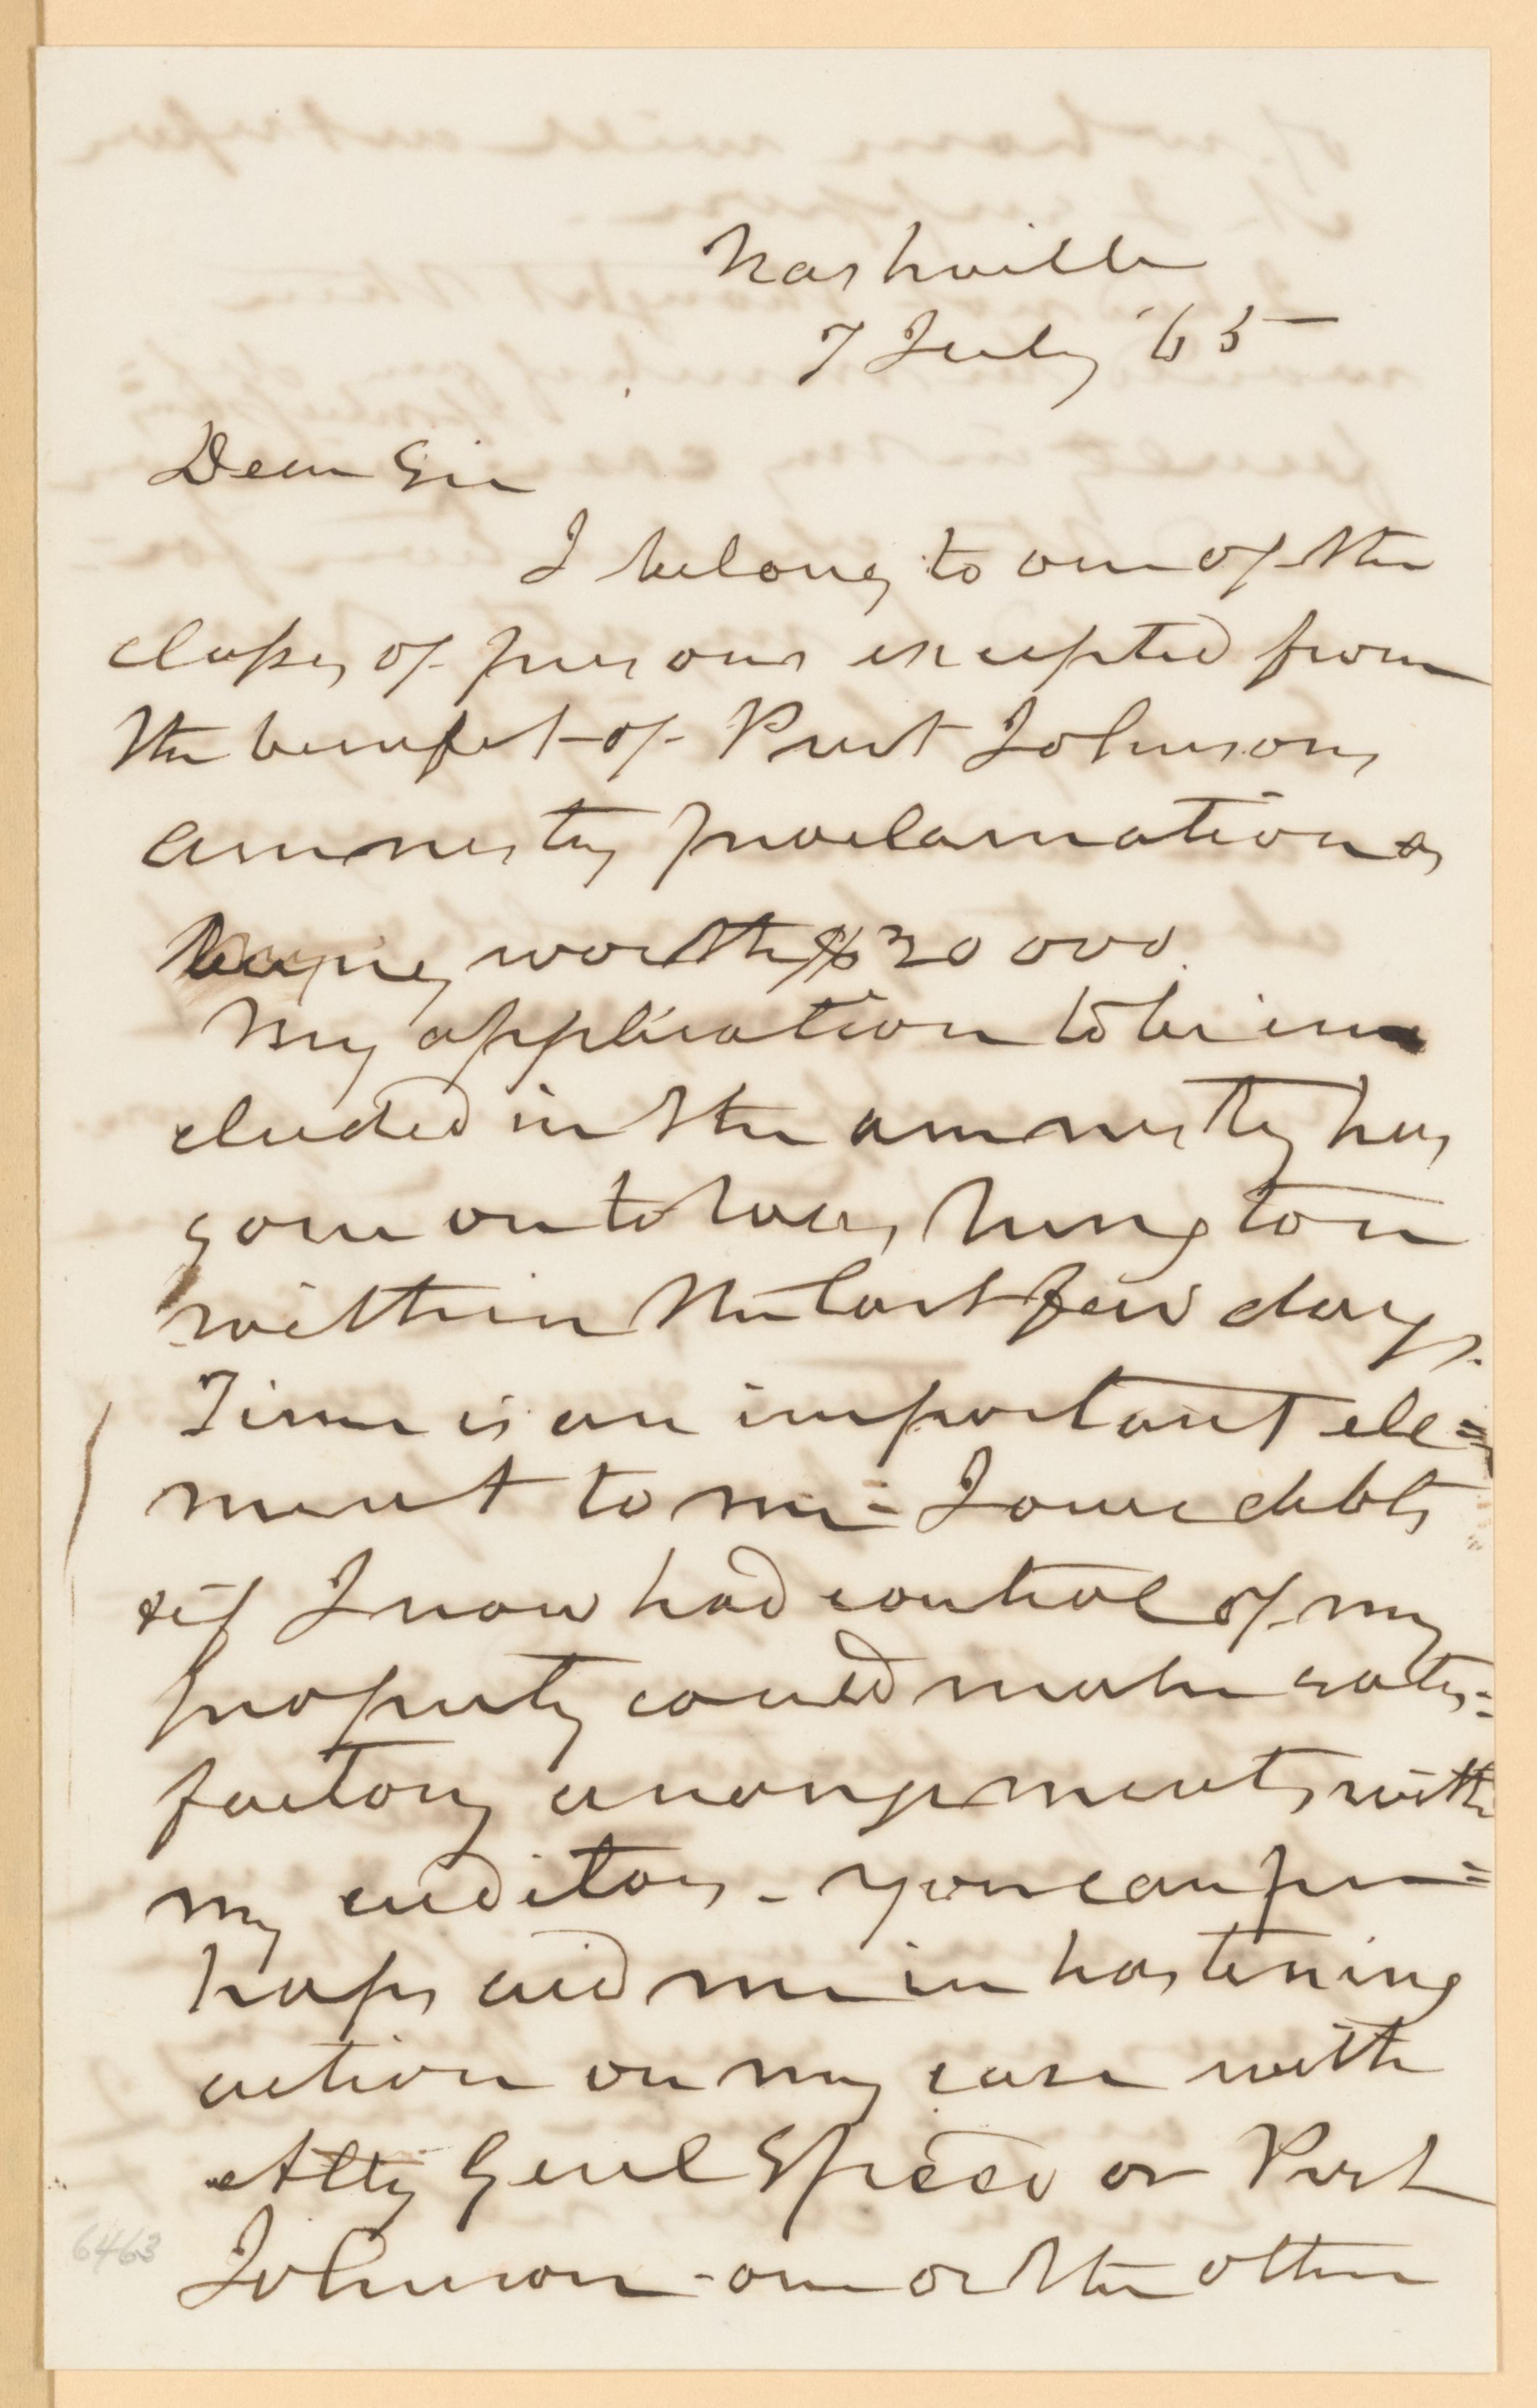 Nashville
7 July '65
Dear Sir
I belong to one of the
classes of persons excepted from
the benefit of Prest Johnsons
amnesty proclamation as
being worth $20 000.
My application to be in
cluded in the amnesty has
gone on to Washington
within the last few days.
Time is an important ele=
ment to me = I owe debts
& if I now had control of my
property could make satis=
factory arrangements with
my creditors - you can per=
haps aid me in hastening
action on my case with
Atty Genl Speed or Prest
Johnson - one or the other
6463